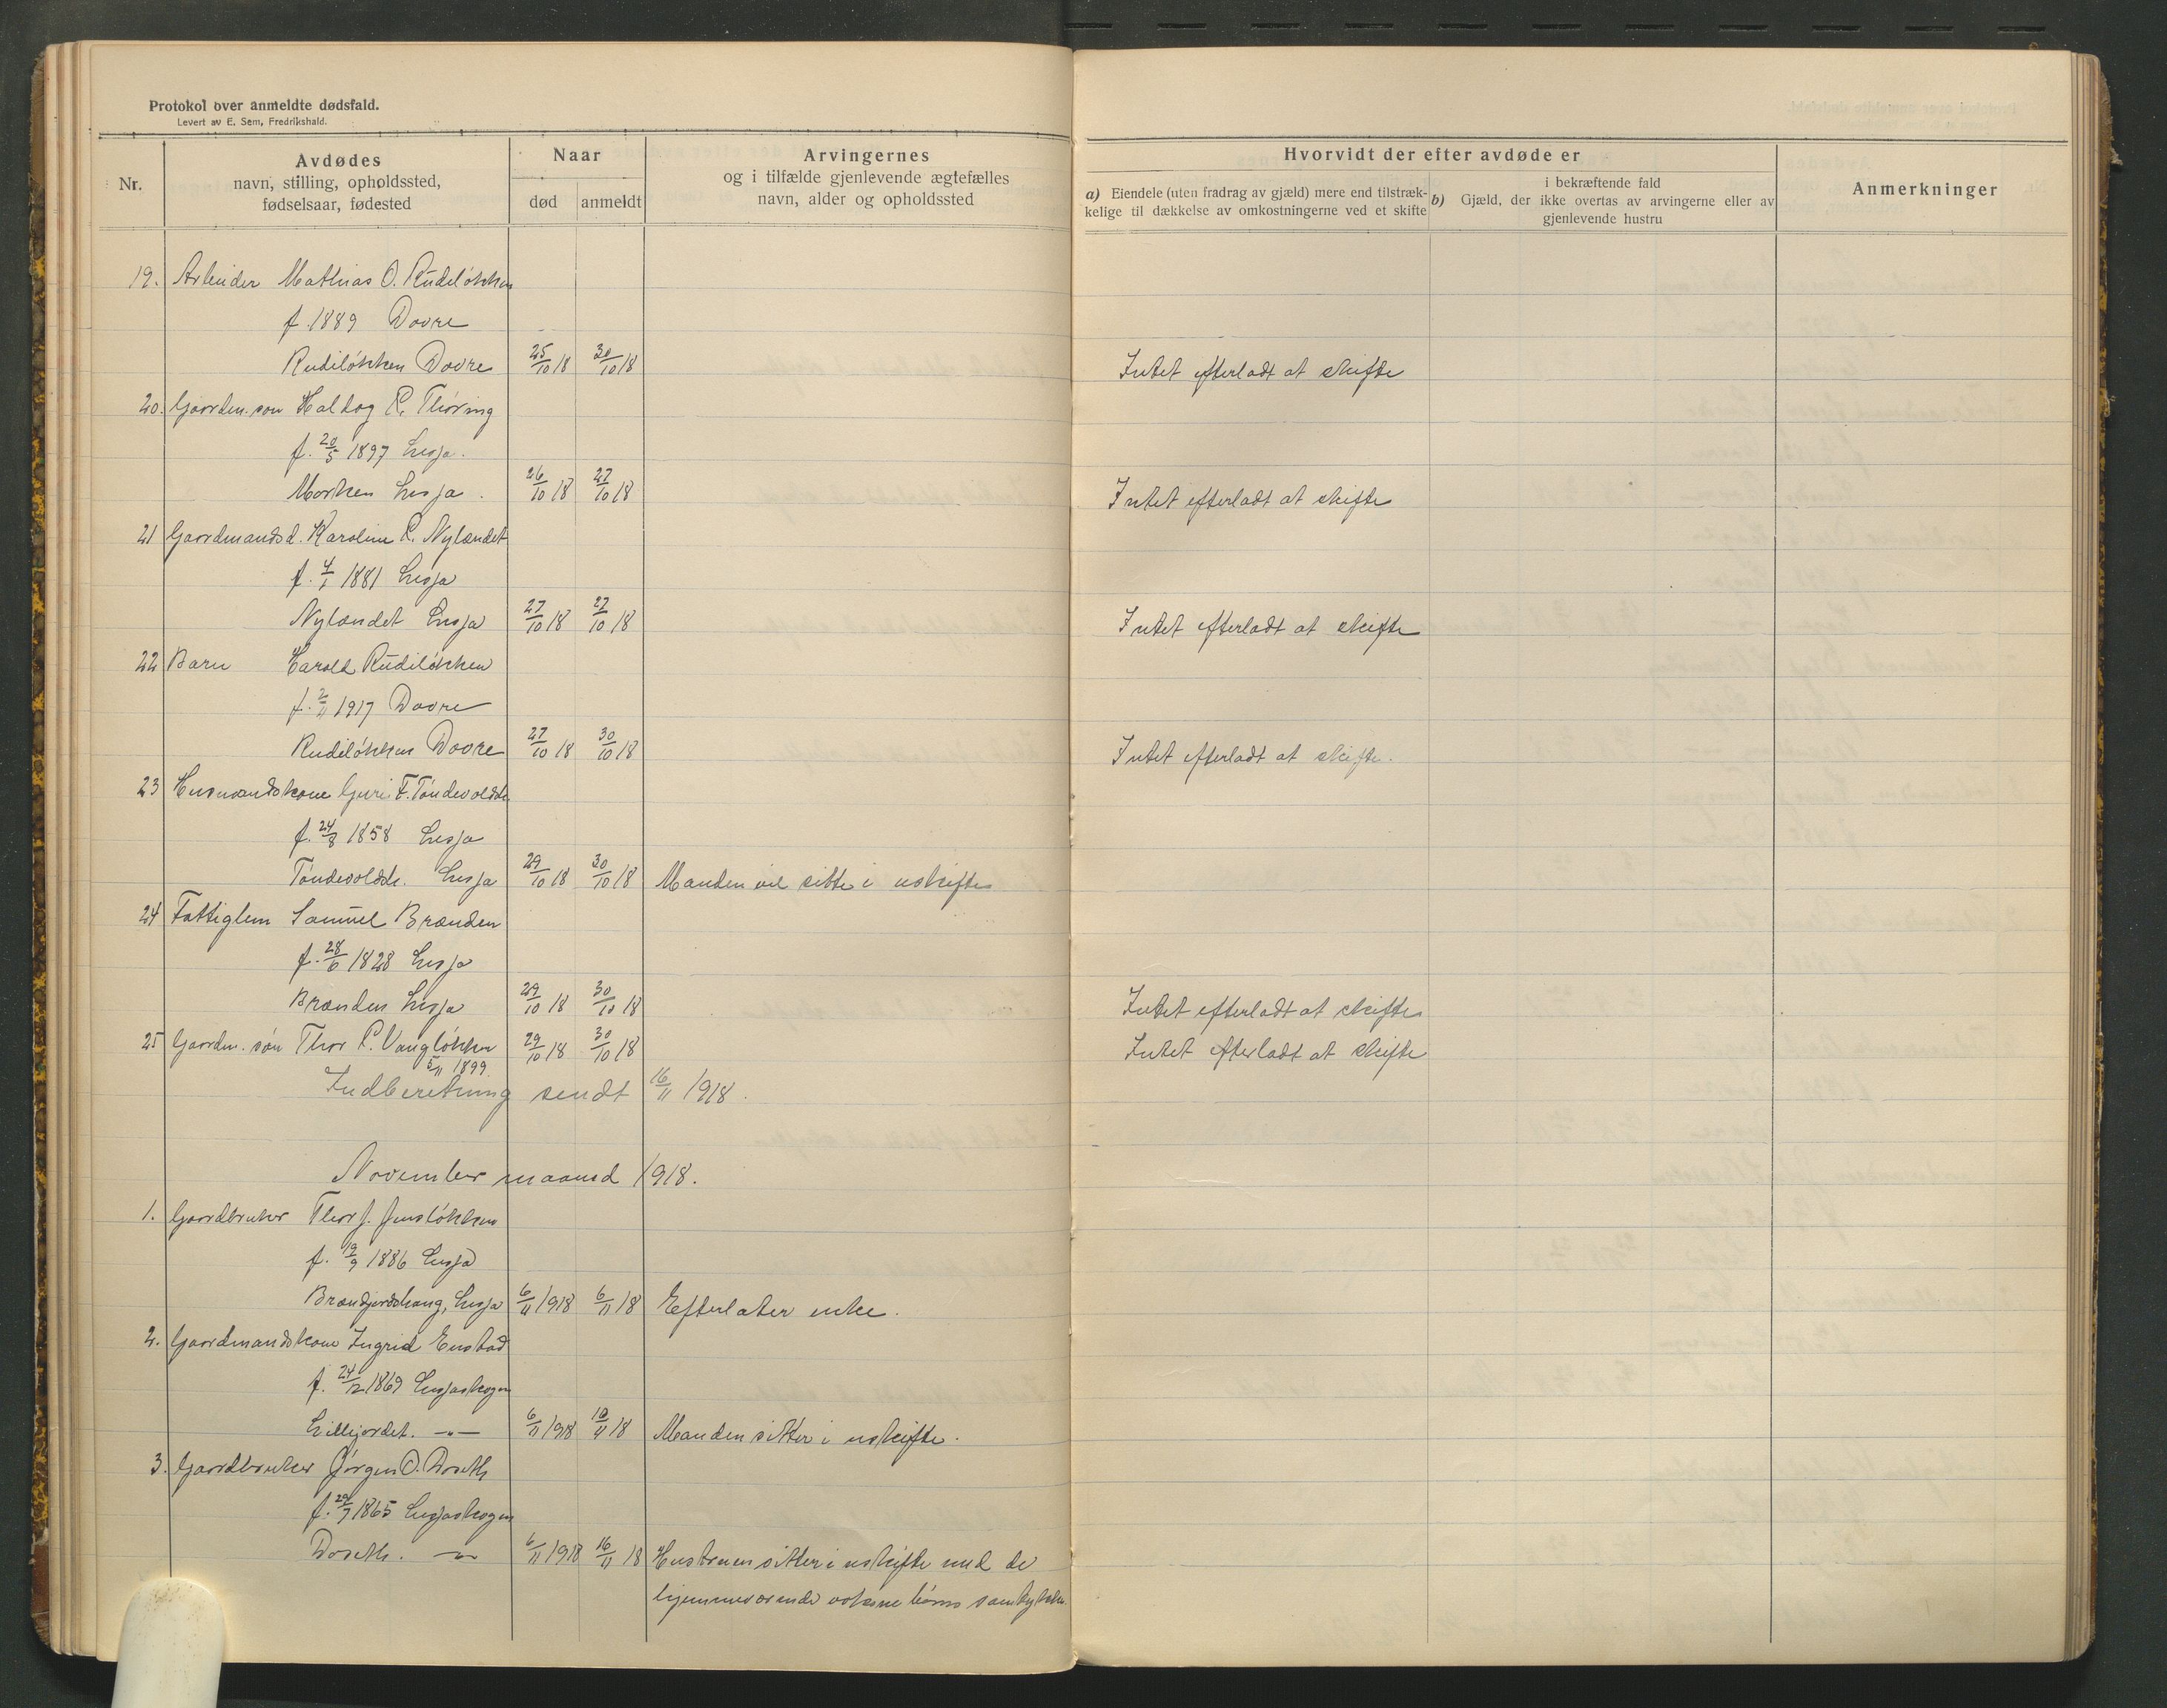 Protokol over anmeldte dødsfald.
Levert av E. Sem, Fredrikshald.
Nr.
Avdødes
navn, stilling, opholdssted,
fødselsaar, fødested
Naar
død
anmeldt
Arvingernes
og i tilfælde gjenlevende ægtefælles
navn, alder og opholdssted
Hvorvidt der efter avdøde er
a) Eiendele (uten fradrag av gjæld) mere end tilstræk-
kelige til dækkelse av omkostningerne ved et skifte
i bekræftende fald
b) Gjæld, der ikke overtas av arvingerne eller av
gjenlevende hustru
Anmerkninger
19. Arbeider Mathias O. Rudeløkken
f. 1889 Dovre
Rudiløkken Dovre 25/10 18 30/10 18 Intet efterladt at skifte
20. Gaardm. søn Haldog R. Thøring
f. 20/5 1897 Lesja.
Morken Lesja. 26/10 18 27/10 18 Intet efterladt at skifte
21 Gaardmandsd. Karoline R. Nylændet
f. 4/1 1881 Lesja
Nylændet Lesja 27/10 18 27/10 18 Intet efterladt at skifte
22 Barn Harold Rudiløkken
f. 2/11 1917 Dovre
Rudiløkken Dovre 27/10 18 30/10 18 Intet efterladt at skifte.
23 Husmandskone Guri F.
f. 24/8 1858 Lesja
Lesja 29/10 18 30/10 18 Manden vil sitte i uskifte
24 Fattiglem Samuel Brænden
f. 28/6 1828 Lesja
Brænden Lesja 29/10 18 30/10 18 Intet efterladt at skifte
25 Gaardm. søn Thor P. Vangløkken 29/10 18 30/10 18 Intet efterladt at skifte
5/11 1899.
Indberetning sendt 16/11 1918.
November maaned 1918.
1. Gaardbruker Thor J. Jensløkken
f. 19/9 1886 Lesja
Lesja 6/11 1918 6/11 18 Efterlater enke.
2. Gaardmandskone Ingrid Enstad
f. 24/12 1869 Lesjaskogen
Lillijordet. -"- 6/11 1918 10/11 18 Manden sitter i uskifte.
3. Gaardbruker Jørgen O. Doseth
f. 29/7 1865 Lesjaskogen
Doseth. -"- 6/11 1918 16/11 18 Hustruen sitter i uskifte med de
hjemmeværende voksne børns samtykke.